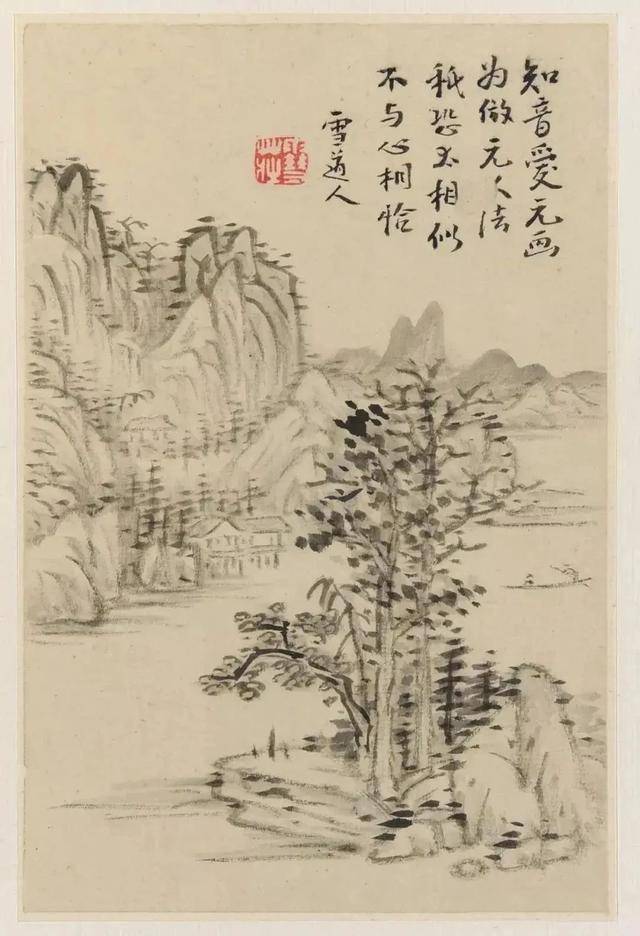 知音愛元画
为倣元人法
秪恐不相似
不与心相恰
雪道人
雪莊